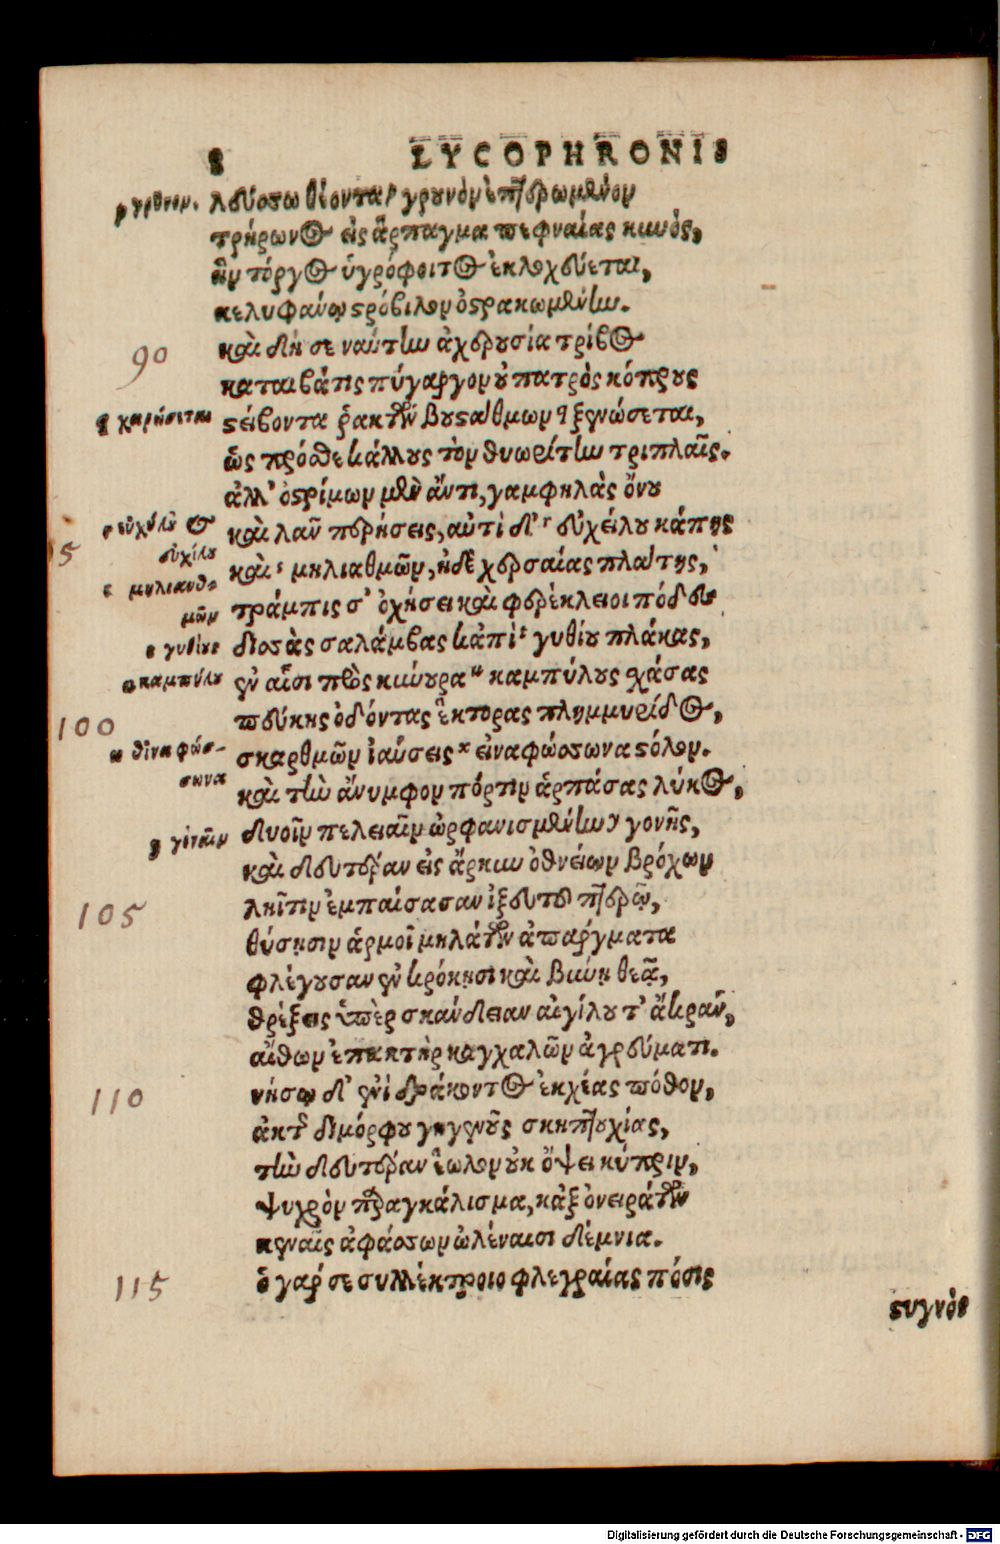 8 LYCOPHRONIS
λεύσσω θέοντα ρ γρυνὸν ἐπτερωμένον
τρήρωνος εἰς ἅρπαγμα πεφναίας κυνὸς,
ἣν τόργος ὑγρόφοιτος ἐκλοχεύεται,
κελυφάνῳ στρόβιλον ὀστρακωμένην.
90
καὶ δή σε ναύτην ἀχερουσία τρίβος
καταιβάτις πύγαργον οὐ πατρὸς κόπρους
q χαρήσεται
στείβοντα ῥακτῶν βουσταθμων q ξενώσεται,
ὥς πρόσθε κάλλους τὸν θυωρίτην τριπλαῖς.
ἀλλ' ὀστρίμων μὲν ἀντι, γαμφηλὰς ὄνου
καὶ λαν περήσεις, αὐτὶ δ' r εὐχείλου κάπης
5
εὐχίλου
καὶ s μηλιαθμῶν, ἠδὲ χερσαίας πλάτης,
s μηλιανθ-
μῶν
τράμπις σ' ὀχήσει καὶ φερέκλειοι πόδες
t γυθίου
δισσὰς σαλάμβας κἀπὶ t γυθίου πλάκας,
u καμπύλου
ἐν αἷσι πρὸς κύνουρα u καμπύλους σχάσας
100
πεύκης ὀδόντας ἕκτορας πλημμυρίδος,
x
σκαρθμῶν ἰαύσεις x εἰναφώσσωνα στόλον.
καὶ τὴν ἄνυμφον πόρτιν ἁρπάσας λύκος,
y
δυοῖν πελειαῖν ὠρφανισμένην y γονῆς,
καὶ δευτέραν εἰς ἄρκυν ὀθνείων βρόχων
105
ληῖτιν ἐμπαίσασαν ἰξευτοῦ πτερῷ,
θύσῃσιν ἁρμοῖ μηλάτων ἀπαργματα
φλέγουσαν ἐν κρόκῃσι καὶ βύνῃ θεᾷ,
θρέξεις ὑπὲρ σκάνδειαν αἰγίλου τ' ἄκραν,
αἴθων ἐπακτὴρ καγχαλῶν ἀγρεύματι.
110
νήσῳ δ' ἐνὶ δράκοντος ἐκχέας πόθον,
ἀκτῆς διμόρφου γηγενοῦς σκηπτουχίας,
τὴν δευτέραν ἕωλον οὐκ ὄψει κύπριν,
ψυχρὸν παραγκάλισμα, κἀξ ὀνειράτων
κεναῖς ἀφάσσων ὠλέναισι δέμνια.
115
ὁ γάρ σε συλλέκτροιο φλεγραίας πόσις
στυγνὸς
Digitalisierung gefördert durch die Deutsche Forschungsgemeinschaft - DFG